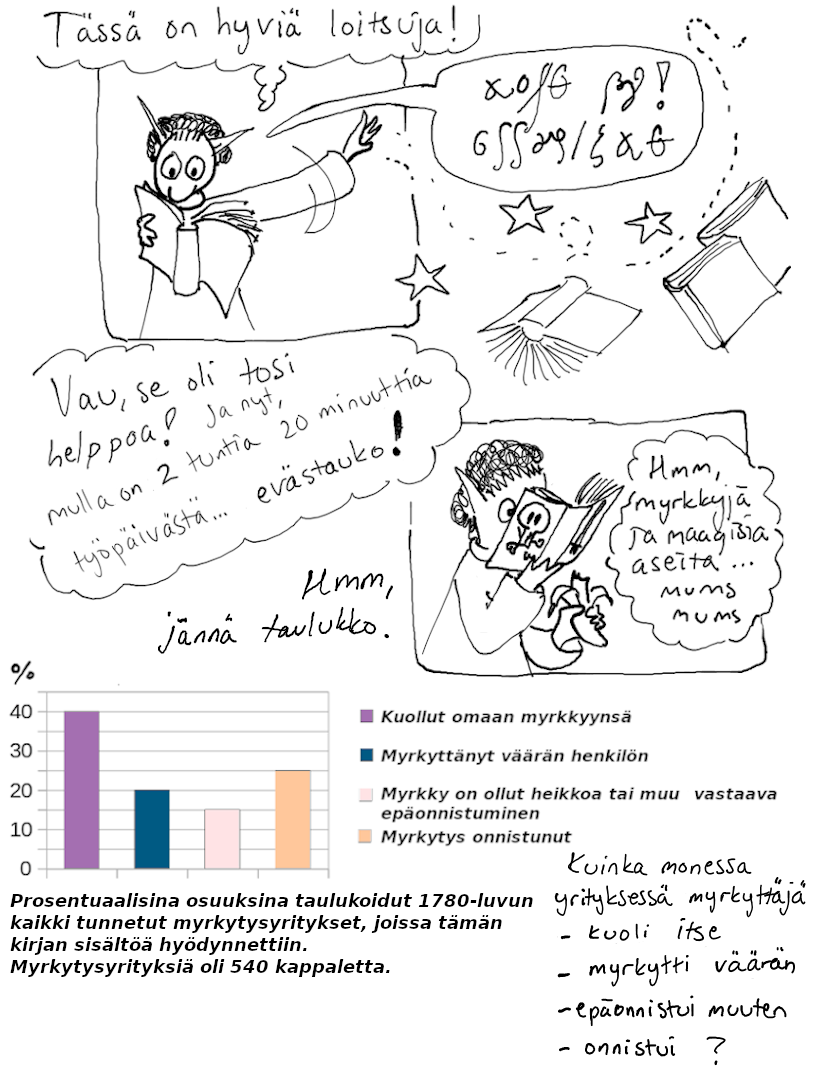 Tässä on hyviä loitsuja!
Vau, se oli tosi
helppoa! Ja nyt,
mulla on 2 tuntia 20 minuuttia
työpäivästä... evästauko!
Hmm,
myrkkyjä
ja maagisia
aseita ...
mums
mums
Hmm,
jännä taulukko.
%
40
30
20
10
0
Kuollut omaan myrkkyynsä
Myrkyttänyt väärän henkilön
Myrkky on ollut heikkoa tai muu vastaava
epäonnistuminen
Myrkytys onnistunut
Prosentuaalisina osuuksina taulukoidut 1780-luvun
kaikki tunnetut myrkytysyritykset, joissa tämän
kirjan sisältöä hyödynnettiin.
Myrkytysyrityksiä oli 540 kappaletta.
Kuinka monessa
yrityksessä myrkyttäjä
- kuoli itse
- myrkytti väärän
- epäonnistui muuten
- onnistui ?